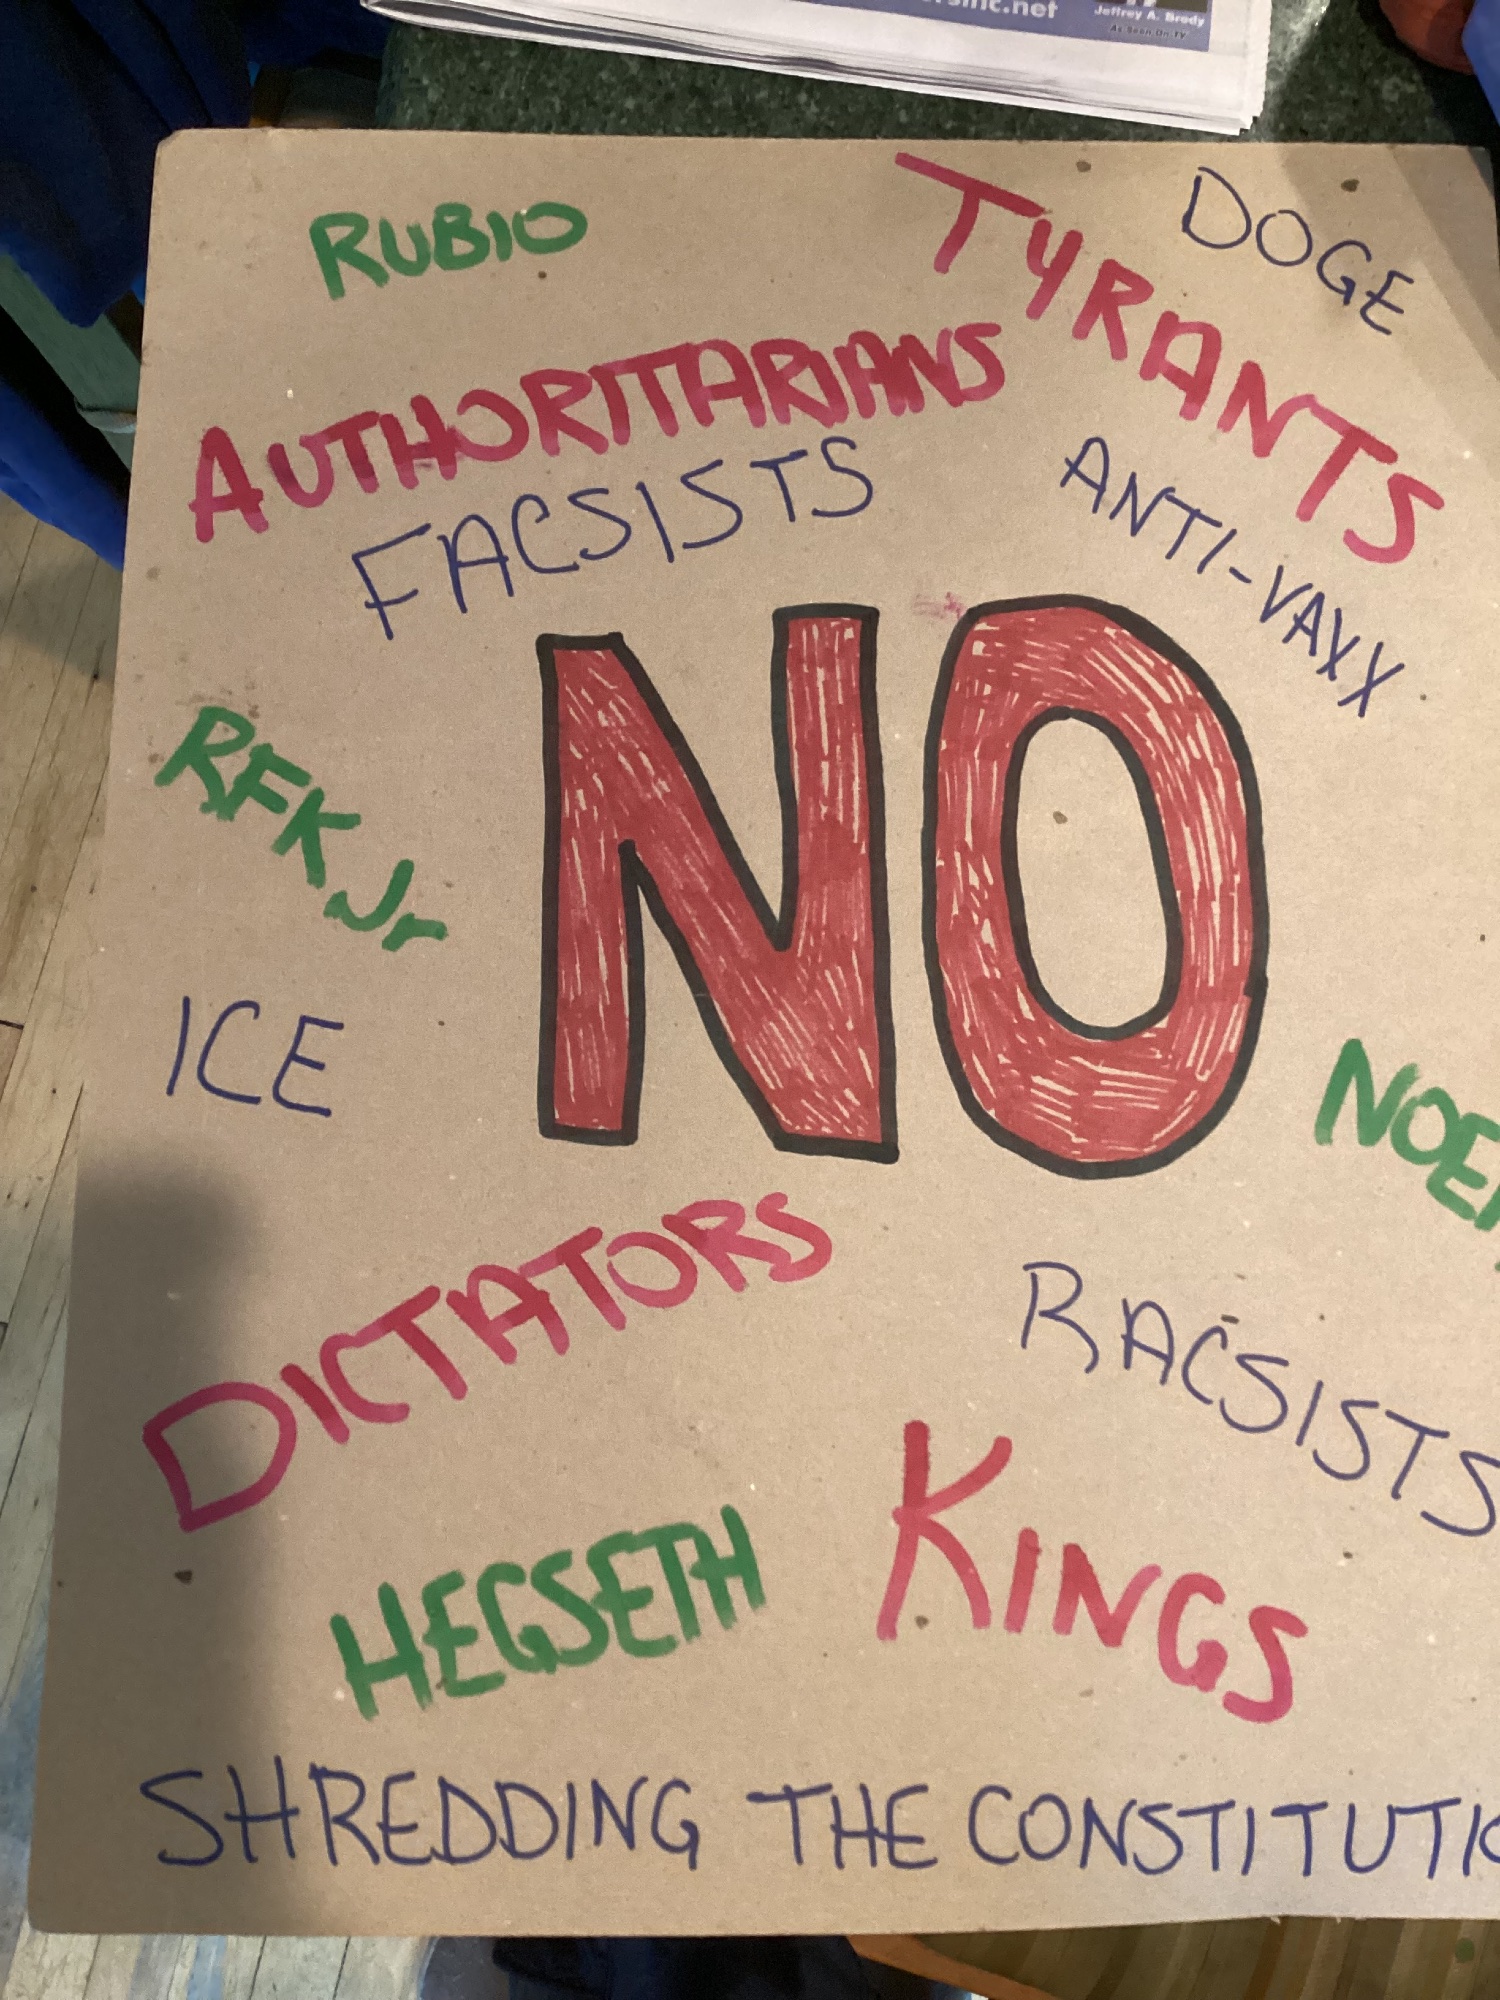 Jeffrey A. Brody
As Seen On TV
RUBIO
TYRANTS
DOGE
AUTHORITARIANS
FACSISTS
ANTI-VAXX
NO
RFK Jr
ICE
NOE
DICTATORS
RACSISTS
HEGSETH
KINGS
SHREDDING THE CONSTITUTIO